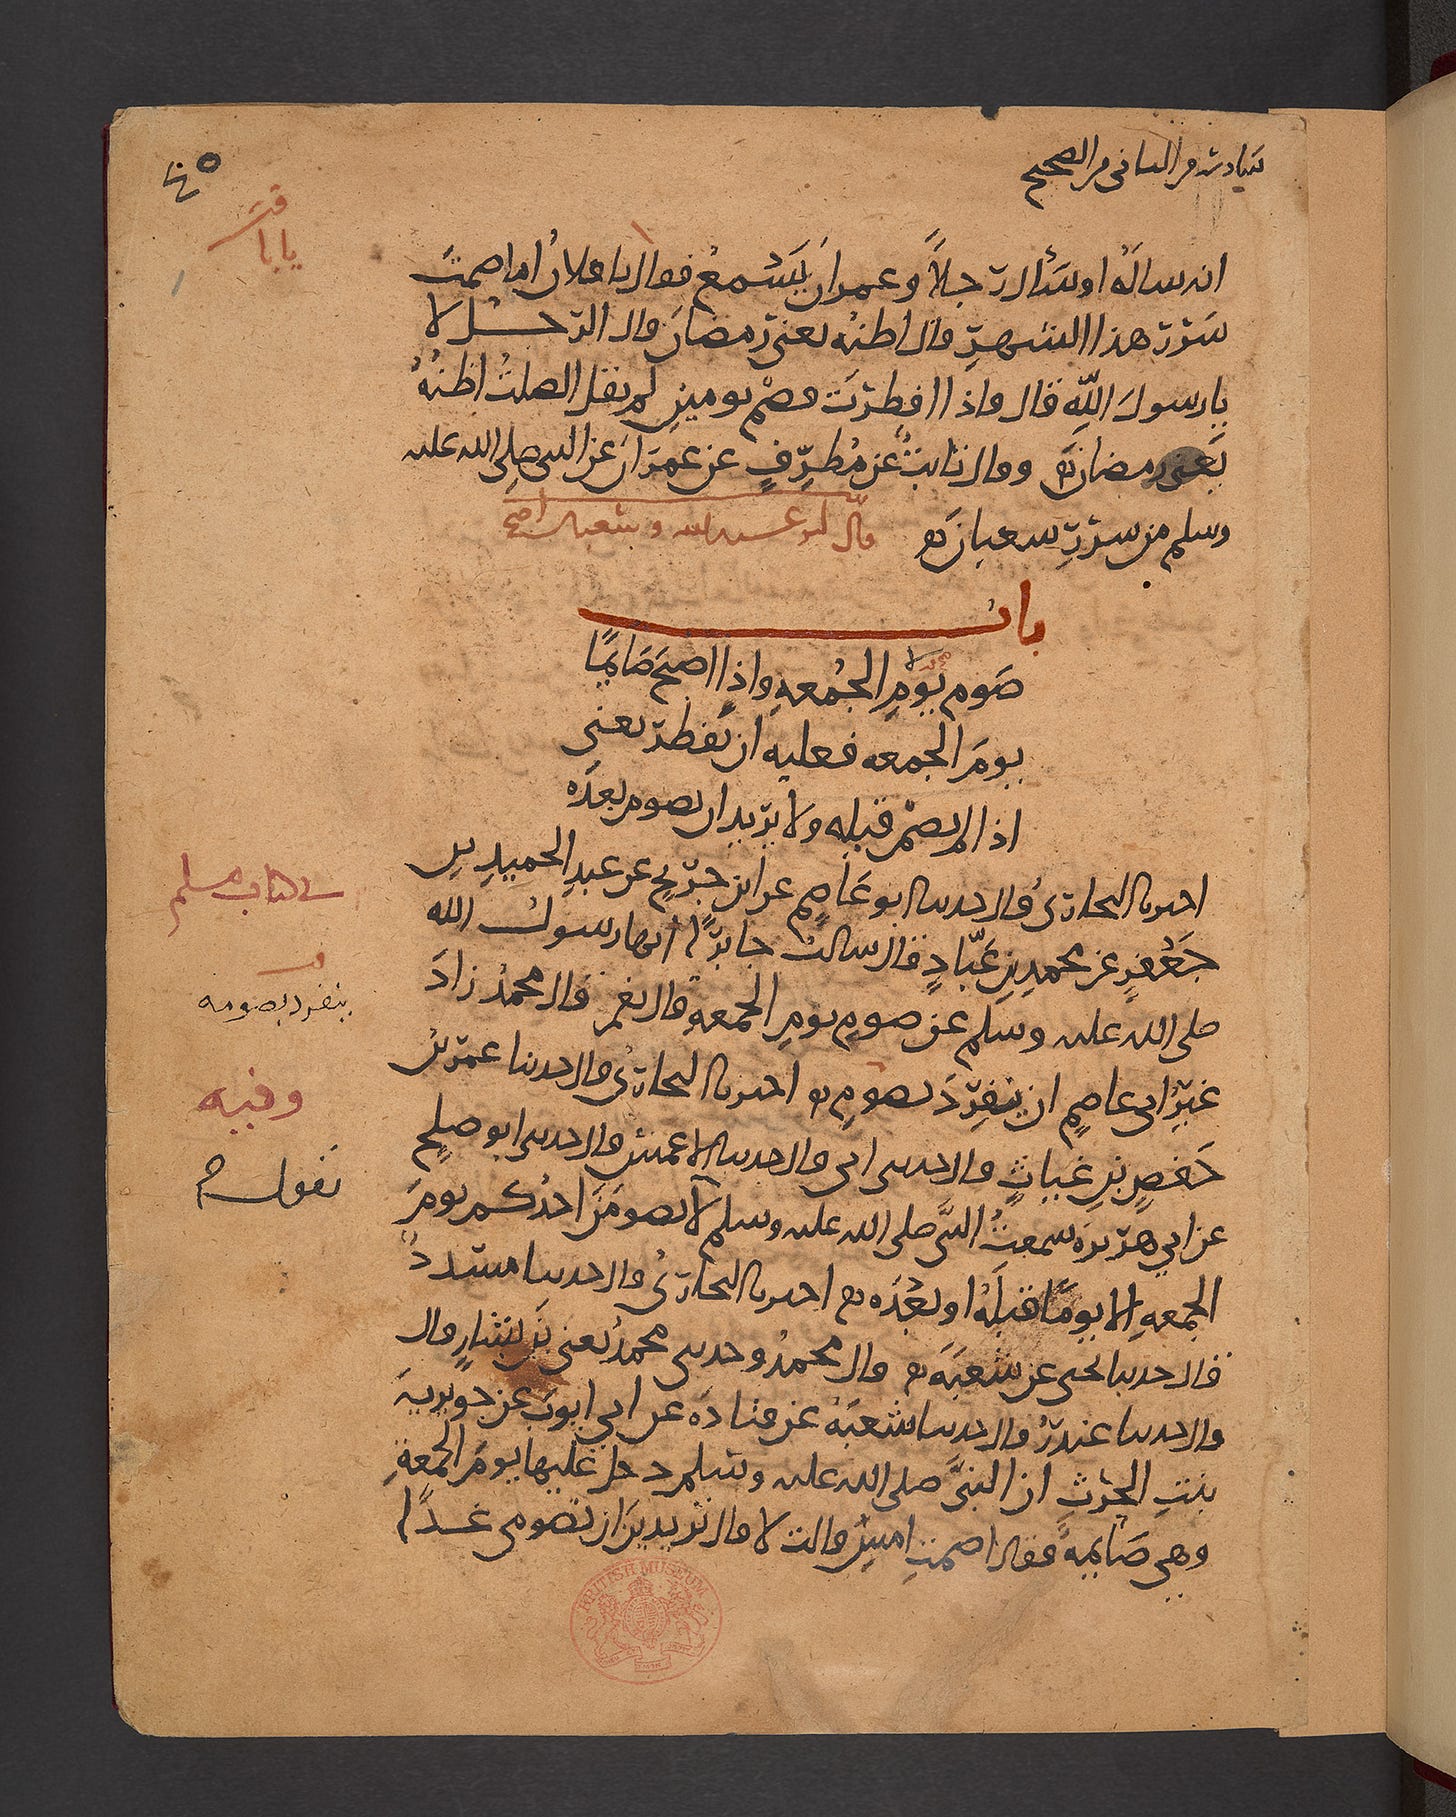 سادس من الثاني من الصحيح
٤٥
يا با
انه ساله او سأل رجلا وعمران يسمع فقال يا فلان اما صمت
سرر هذا الشهر قال اظنه يعني رمضان قال الرجل لا
يا رسول الله قال فاذا افطرت فصم يومين لم يقل الصلت اظنه
يعني رمضان وقال ثابت عن مطرف عن عمران عن النبي صلى الله عليه
وسلم من سرر شعبان
قال ابو عبد الله وشعبان اصح
باب
صوم يوم الجمعه واذا اصبح صايما
يوم الجمعه فعليه ان يفطر يعني
اذا لم يصم قبله ولا يريد ان يصوم بعده
اخبرنا البخاري قال حدثنا ابو عاصم عن ابن جريج عن عبد الحميد بن
جعفر عن محمد بن عباد قال سالت جابرا انها رسول الله
صلى الله عليه وسلم عن صوم يوم الجمعه قال نعم قال محمد زاد
غير ابي عاصم ان ينفرد بصوم اخبرنا البخاري قال حدثنا عمر بن
حفص بن غياث قال حدثني ابي قال حدثنا الاعمش قال حدثني ابو صلح
عن ابي هريره سمعت النبي صلى الله عليه وسلم لا يصومن احدكم يوم
الجمعه الا يوما قبله او بعده اخبرنا البخاري قال حدثنا مسدد
قال حدثنا يحيى عن شعبه قال محمد وحدثني محمد يعني بن بشار قال
قال حدثنا غندر قال حدثنا شعبه عن قتاده عن ابي ايوب عن جويرية
بنت الحرث ان النبي صلى الله عليه وسلم دخل عليها يوم الجمعة
وهي صايمة فقال اصمت امس قالت لا قال تريدين ان تصومي غدا
في كتاب مسلم
ينفرد بصومه
وفيه
يقول
BRITISH MUSEUM